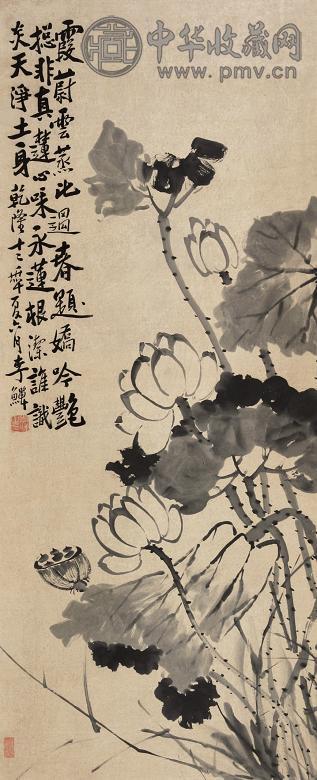 中华收藏网
www.pmv.cn
霞蔚雲蒸比迴春題嬌吟艷
摠非真蓮心味永蓮根潔誰識
炎天淨土身乾隆十二年夏六月李鱓